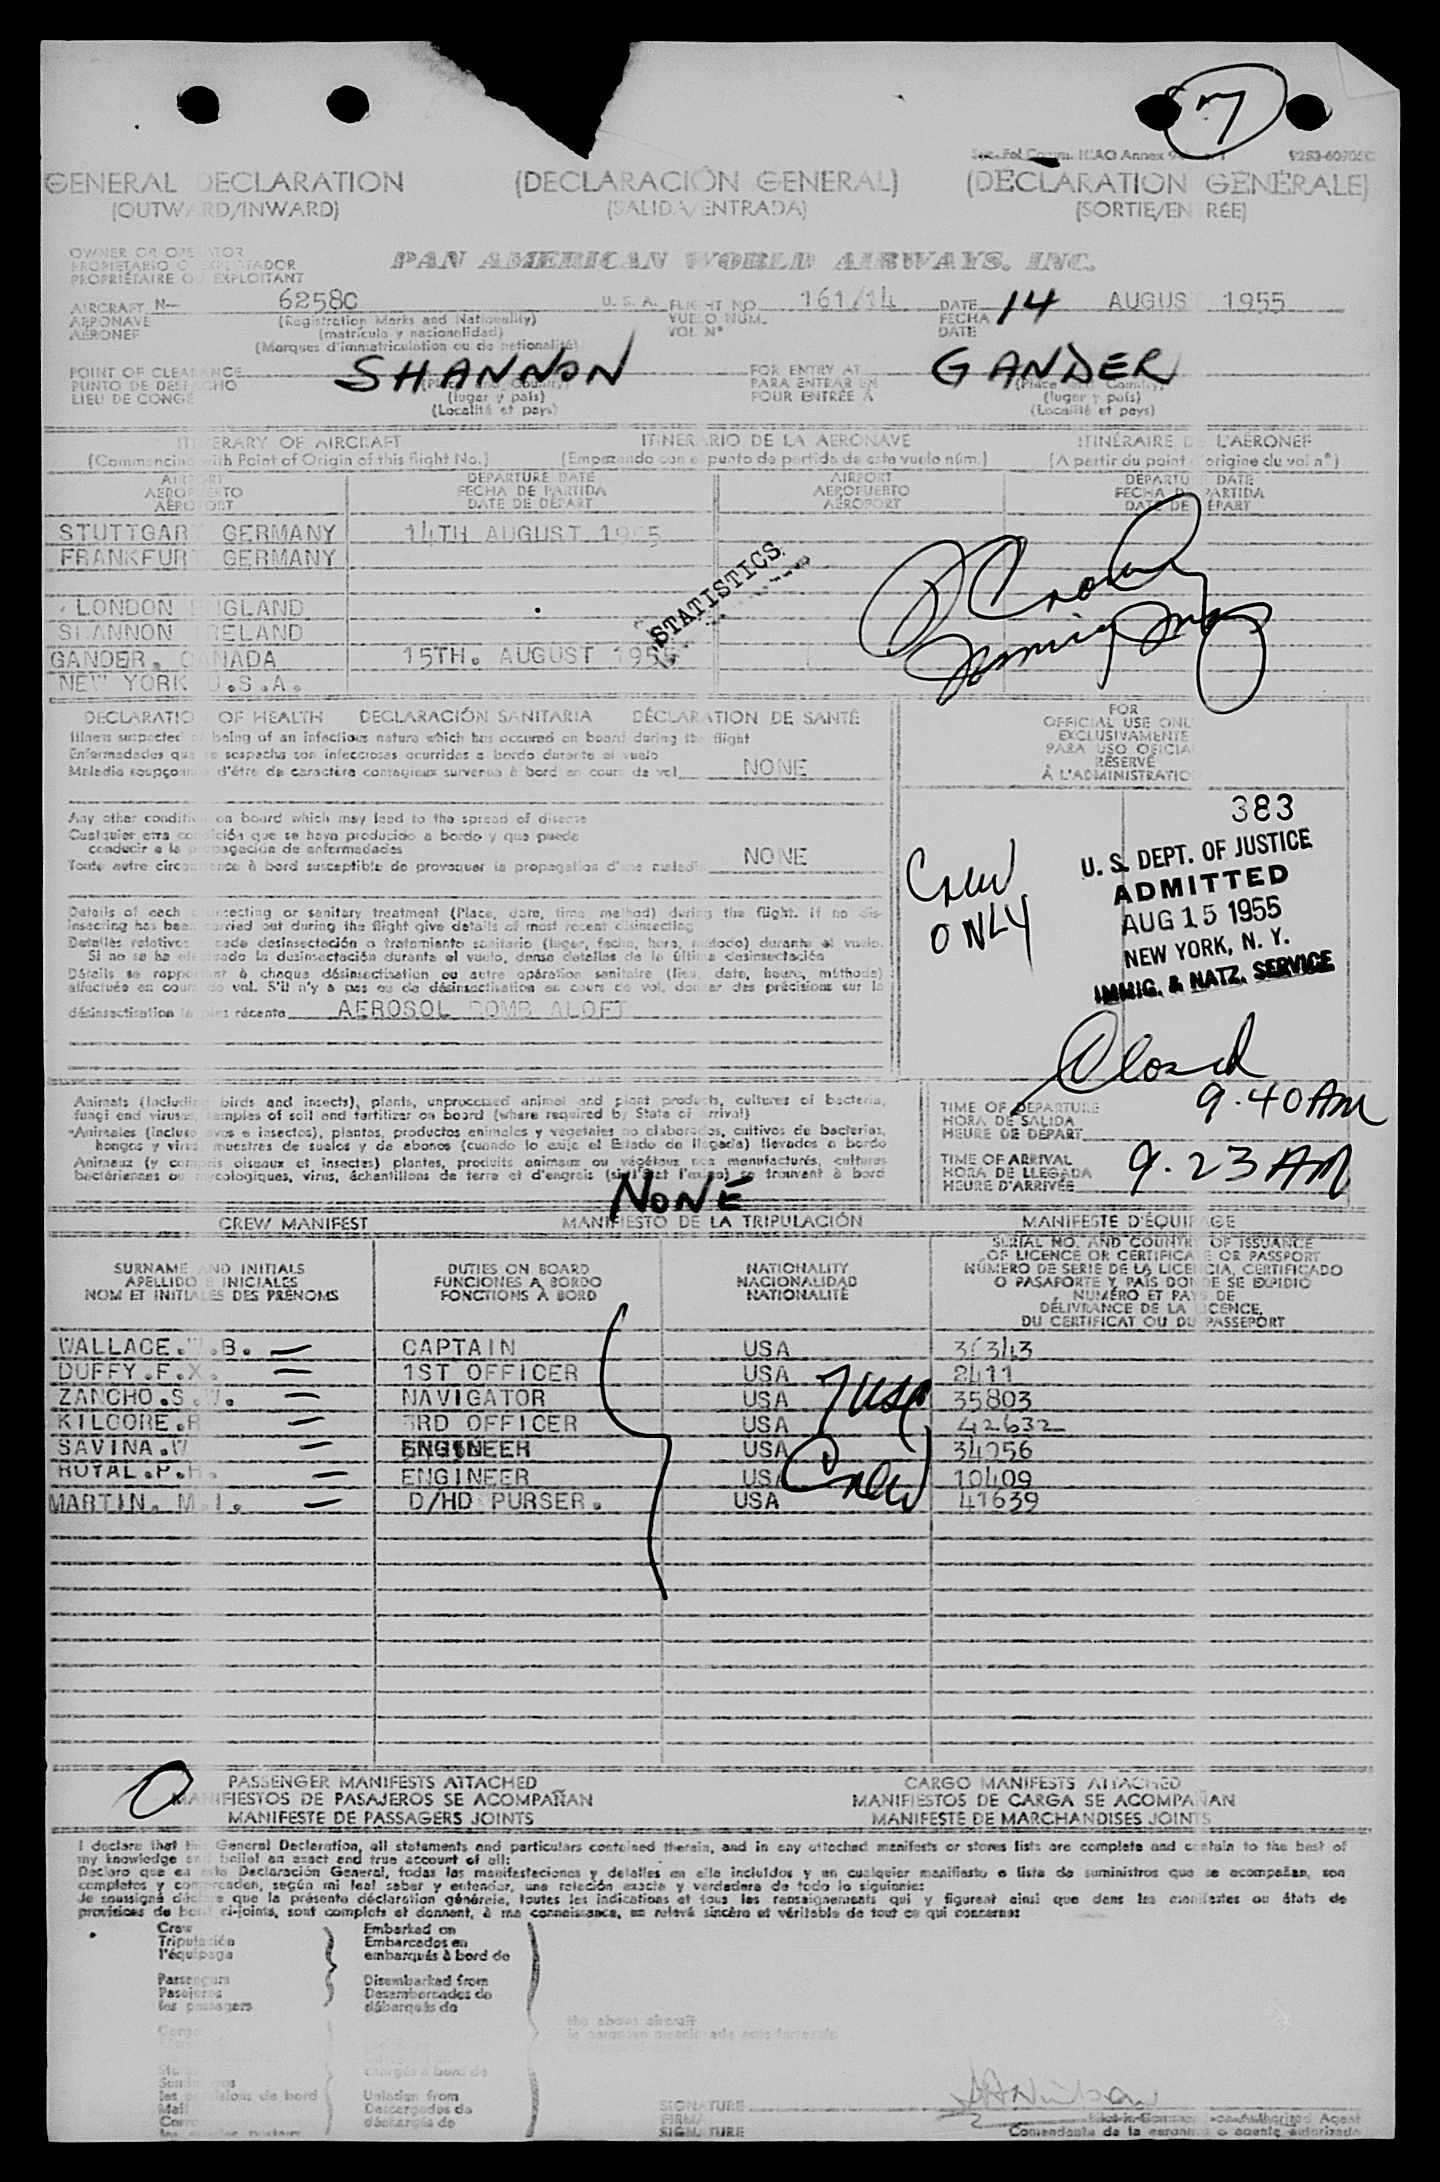 7
GENERAL DECLARATION (DECLARACIÓN GENERAL) (DÉCLARATION GÉNÉRALE)
(OUTWARD/INWARD) (SALIDA/ENTRADA) (SORTIE/ENTRÉE)
OWNER OR OPERATOR
PROPIETARIO O EXPLOTADOR
PROPRIÉTAIRE OU EXPLOITANT
PAN AMERICAN WORLD AIRWAYS, INC.
AIRCRAFT N— 6258C U. S. A. FLIGHT NO. 161/14 DATE 14 AUGUST 1955
AERONAVE (Registration Marks and Nationality) VUELO NUM. FECHA
AÉRONEF (matrícula y nacionalidad) VOL Nº DATE
(Marques d'immatriculation ou de nationalité)
POINT OF CLEARANCE SHANNON FOR ENTRY AT GANDER
PUNTO DE DESPACHO (Place and Country) PARA ENTRAR EN (Place and Country)
LIEU DE CONGÉ (lugar y país) POUR ENTRÉE À (lugar y país)
(Localité et pays) (Localité et pays)
ITINERARY OF AIRCRAFT ITINERARIO DE LA AERONAVE ITINÉRAIRE DE L'AÉRONEF
(Commencing with Point of Origin of this flight No.) (Empezando con el punto de partida de este vuelo núm.) (A partir du point d'origine du vol nº)
AIRPORT DEPARTURE DATE AIRPORT DEPARTURE DATE
AEROPUERTO FECHA DE PARTIDA AEROPUERTO FECHA DE PARTIDA
AÉROPORT DATE DE DÉPART AÉROPORT DATE DE DÉPART
STUTTGART GERMANY 14TH AUGUST 1955
FRANKFURT GERMANY
STATISTICS
LONDON ENGLAND
SHANNON IRELAND
GANDER. CANADA 15TH. AUGUST 1955
NEW YORK U.S.A.
DECLARATION OF HEALTH DECLARACIÓN SANITARIA DÉCLARATION DE SANTÉ
Illness suspected of being of an infectious nature which has occured on board during the flight
Enfermedades que se sospecha son infecciosas ocurridas a bordo durante el vuelo
Maladie soupçonnée d'être de caractère contagieux survenue à bord en cours de vol NONE
FOR
OFFICIAL USE ONLY
EXCLUSIVAMENTE
PARA USO OFICIAL
RÉSERVÉ
À L'ADMINISTRATION
Any other condition on board which may lead to the spread of disease
Cualquier otra condición que se haya producido a bordo y que puede
conducir a la propagación de enfermedades
Toute autre circonstance à bord susceptible de provoquer la propagation d'une maladie NONE
Crew
ONLY
383
U. S. DEPT. OF JUSTICE
ADMITTED
AUG 15 1955
NEW YORK, N. Y.
IMMIG. & NATZ. SERVICE
Details of each disinsecting or sanitary treatment (Place, date, time, method) during the flight. If no dis-
insecting has been carried out during the flight give details of most recent disinsecting
Detalles relativos a cada desinsectación o tratamiento sanitario (lugar, fecha, hora, método) durante el vuelo.
Si no se ha efectuado la desinsectación durante el vuelo, dense detalles de la última desinsectación
Détails se rapportant à chaque désinsectisation ou autre opération sanitaire (lieu, date, heure, méthode)
effectuée en cours de vol. S'il n'y a pas eu de désinsectisation en cours de vol, donner des précisions sur la
désinsectisation la plus récente AEROSOL BOMB ALOFT
Closed
9.40 AM
Animals (including birds and insects), plants, unprocessed animal and plant products, cultures of bacteria,
fungi and viruses, samples of soil and fertilizer on board (where required by State of arrival)
Animales (incluso aves e insectos), plantas, productos animales y vegetales no elaborados, cultivos de bacterias,
hongos y virus, muestras de suelos y de abonos (cuando lo exije el Estado de llegada) llevados a bordo
Animaux (y compris oiseaux et insectes) plantes, produits animaux ou végétaux non manufacturés, cultures
bactériennes ou mycologiques, virus, échantillons de terre et d'engrais (si l'État l'exige) se trouvant à bord
NONE
TIME OF DEPARTURE
HORA DE SALIDA
HEURE DE DÉPART
TIME OF ARRIVAL 9.23 AM
HORA DE LLEGADA
HEURE D'ARRIVÉE
CREW MANIFEST MANIFIESTO DE LA TRIPULACIÓN MANIFESTE D'ÉQUIPAGE
SURNAME AND INITIALS DUTIES ON BOARD NATIONALITY SERIAL NO. AND COUNTRY OF ISSUANCE
APELLIDO E INICIALES FUNCIONES A BORDO NACIONALIDAD OF LICENCE OR CERTIFICATE OR PASSPORT
NOM ET INITIALES DES PRÉNOMS FONCTIONS À BORD NATIONALITÉ NÚMERO DE SERIE DE LA LICENCIA, CERTIFICADO
O PASAPORTE Y PAÍS DONDE SE EXPIDIÓ
NUMÉRO ET PAYS DE
DÉLIVRANCE DE LA LICENCE,
DU CERTIFICAT OU DU PASSEPORT
WALLACE. .B. CAPTAIN USA 36343
DUFFY.F.X. 1ST OFFICER USA 2411
ZANCHO.S.W. NAVIGATOR USA 35803
KILGORE.R 3RD OFFICER USA 42632
SAVINA.W ENGINEER USA 34956
ROYAL.P.H. ENGINEER USA 10409
MARTIN. M.I. D/HD PURSER. USA 41639
7 USA
Crew
0
PASSENGER MANIFESTS ATTACHED CARGO MANIFESTS ATTACHED
MANIFIESTOS DE PASAJEROS SE ACOMPAÑAN MANIFIESTOS DE CARGA SE ACOMPAÑAN
MANIFESTE DE PASSAGERS JOINTS MANIFESTE DE MARCHANDISES JOINTS
I declare that this General Declaration, all statements and particulars contained therein, and in any attached manifests or stores lists are complete and contain to the best of
my knowledge and belief an exact and true account of all:
Declaro que en esta Declaración General, todas las manifestaciones y detalles en ella incluídos y en cualquier manifiesto o lista de suministros que se acompañan, son
completos y comprenden, según mi leal saber y entender, una relación exacta y verdadera de todo lo siguiente:
Je soussigné déclare que la présente déclaration générale, toutes les indications et tous les renseignements qui y figurent ainsi que dans les manifestes ou états de
provisions de bord ci-joints, sont complets et donnent, à ma connaissance, un relevé sincère et véritable de tout ce qui concerne:
Crew Embarked on
Tripulación Embarcados en
l'équipage embarqués à bord de
Passengers Disembarked from
Pasajeros Desembarcados de
les passagers débarqués de
the above aircraft
Cargo
chargés à bord de
les provisions de bord Unladen from
Mail Descargados de
Correo déchargés de
SIGNATURE
FIRMA
SIGNATURE
Authorized Agent
Comandante de la aeronave o agente autorizado